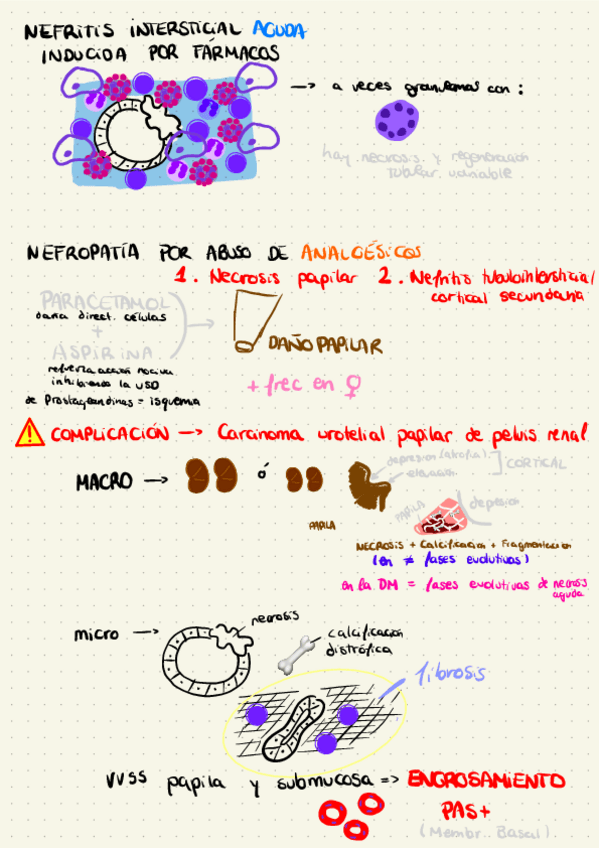 NEFRITIS INTERSTICIAL AGUDA
INDUCIDA POR FÁRMACOS
→ a veces granulomas con :
hay necrosis y regeneración
tubular variable
NEFROPATÍA POR ABUSO DE ANALGÉSICOS
1. Necrosis papilar 2. Nefritis tubulointersticial
cortical secundaria
PARACETAMOL
daña direct. células
+
ASPIRINA
refuerza acción nociva
inhibiendo la VSD
de Prostaglandinas = isquemia
DAÑO PAPILAR
+ frec en ♀
COMPLICACIÓN → Carcinoma urotelial papilar de pelvis renal
MACRO → ó
depresión (atrofia)
elevación
CORTICAL
PAPILA
PAPILA
depresión
NECROSIS + Calcificación + Fragmentación
(en ≠ fases evolutivas)
en la DM = fases evolutivas de necrosis
aguda
micro →
necrosis
calcificación
distrófica
fibrosis
VVSS papila y submucosa => ENGROSAMIENTO
PAS+
(Membr. Basal)